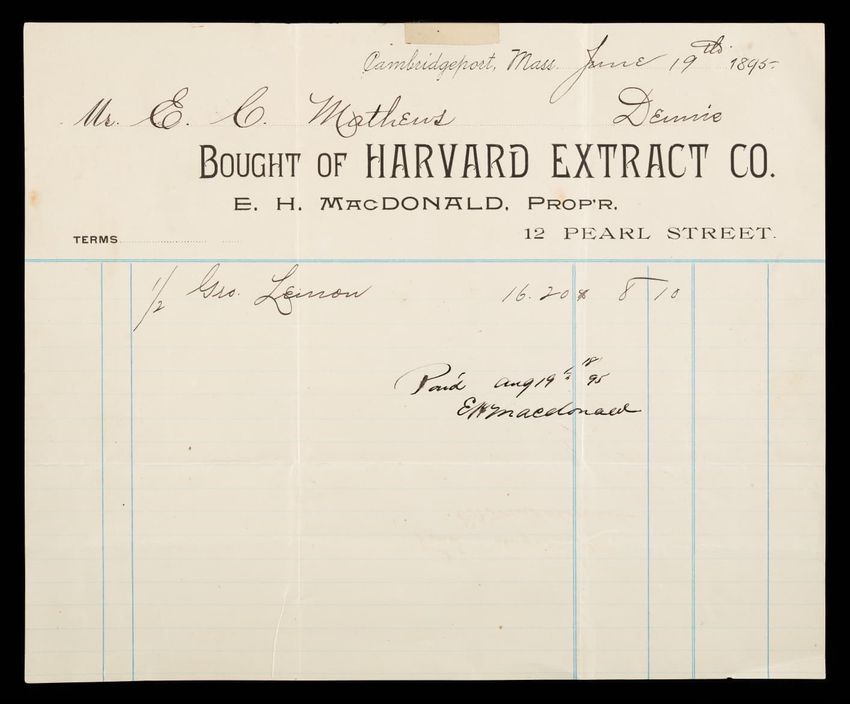 Cambridgeport, Mass. June 19th 1895-
Mr. E. C. Mathews Dennis
BOUGHT OF HARVARD EXTRACT CO.
E. H. MACDONALD, PROP'R.
TERMS 12 PEARL STREET.
1/2 Gro. Lemon 16.20 8 10
Paid Aug 19th 18 95
E H Macdonald